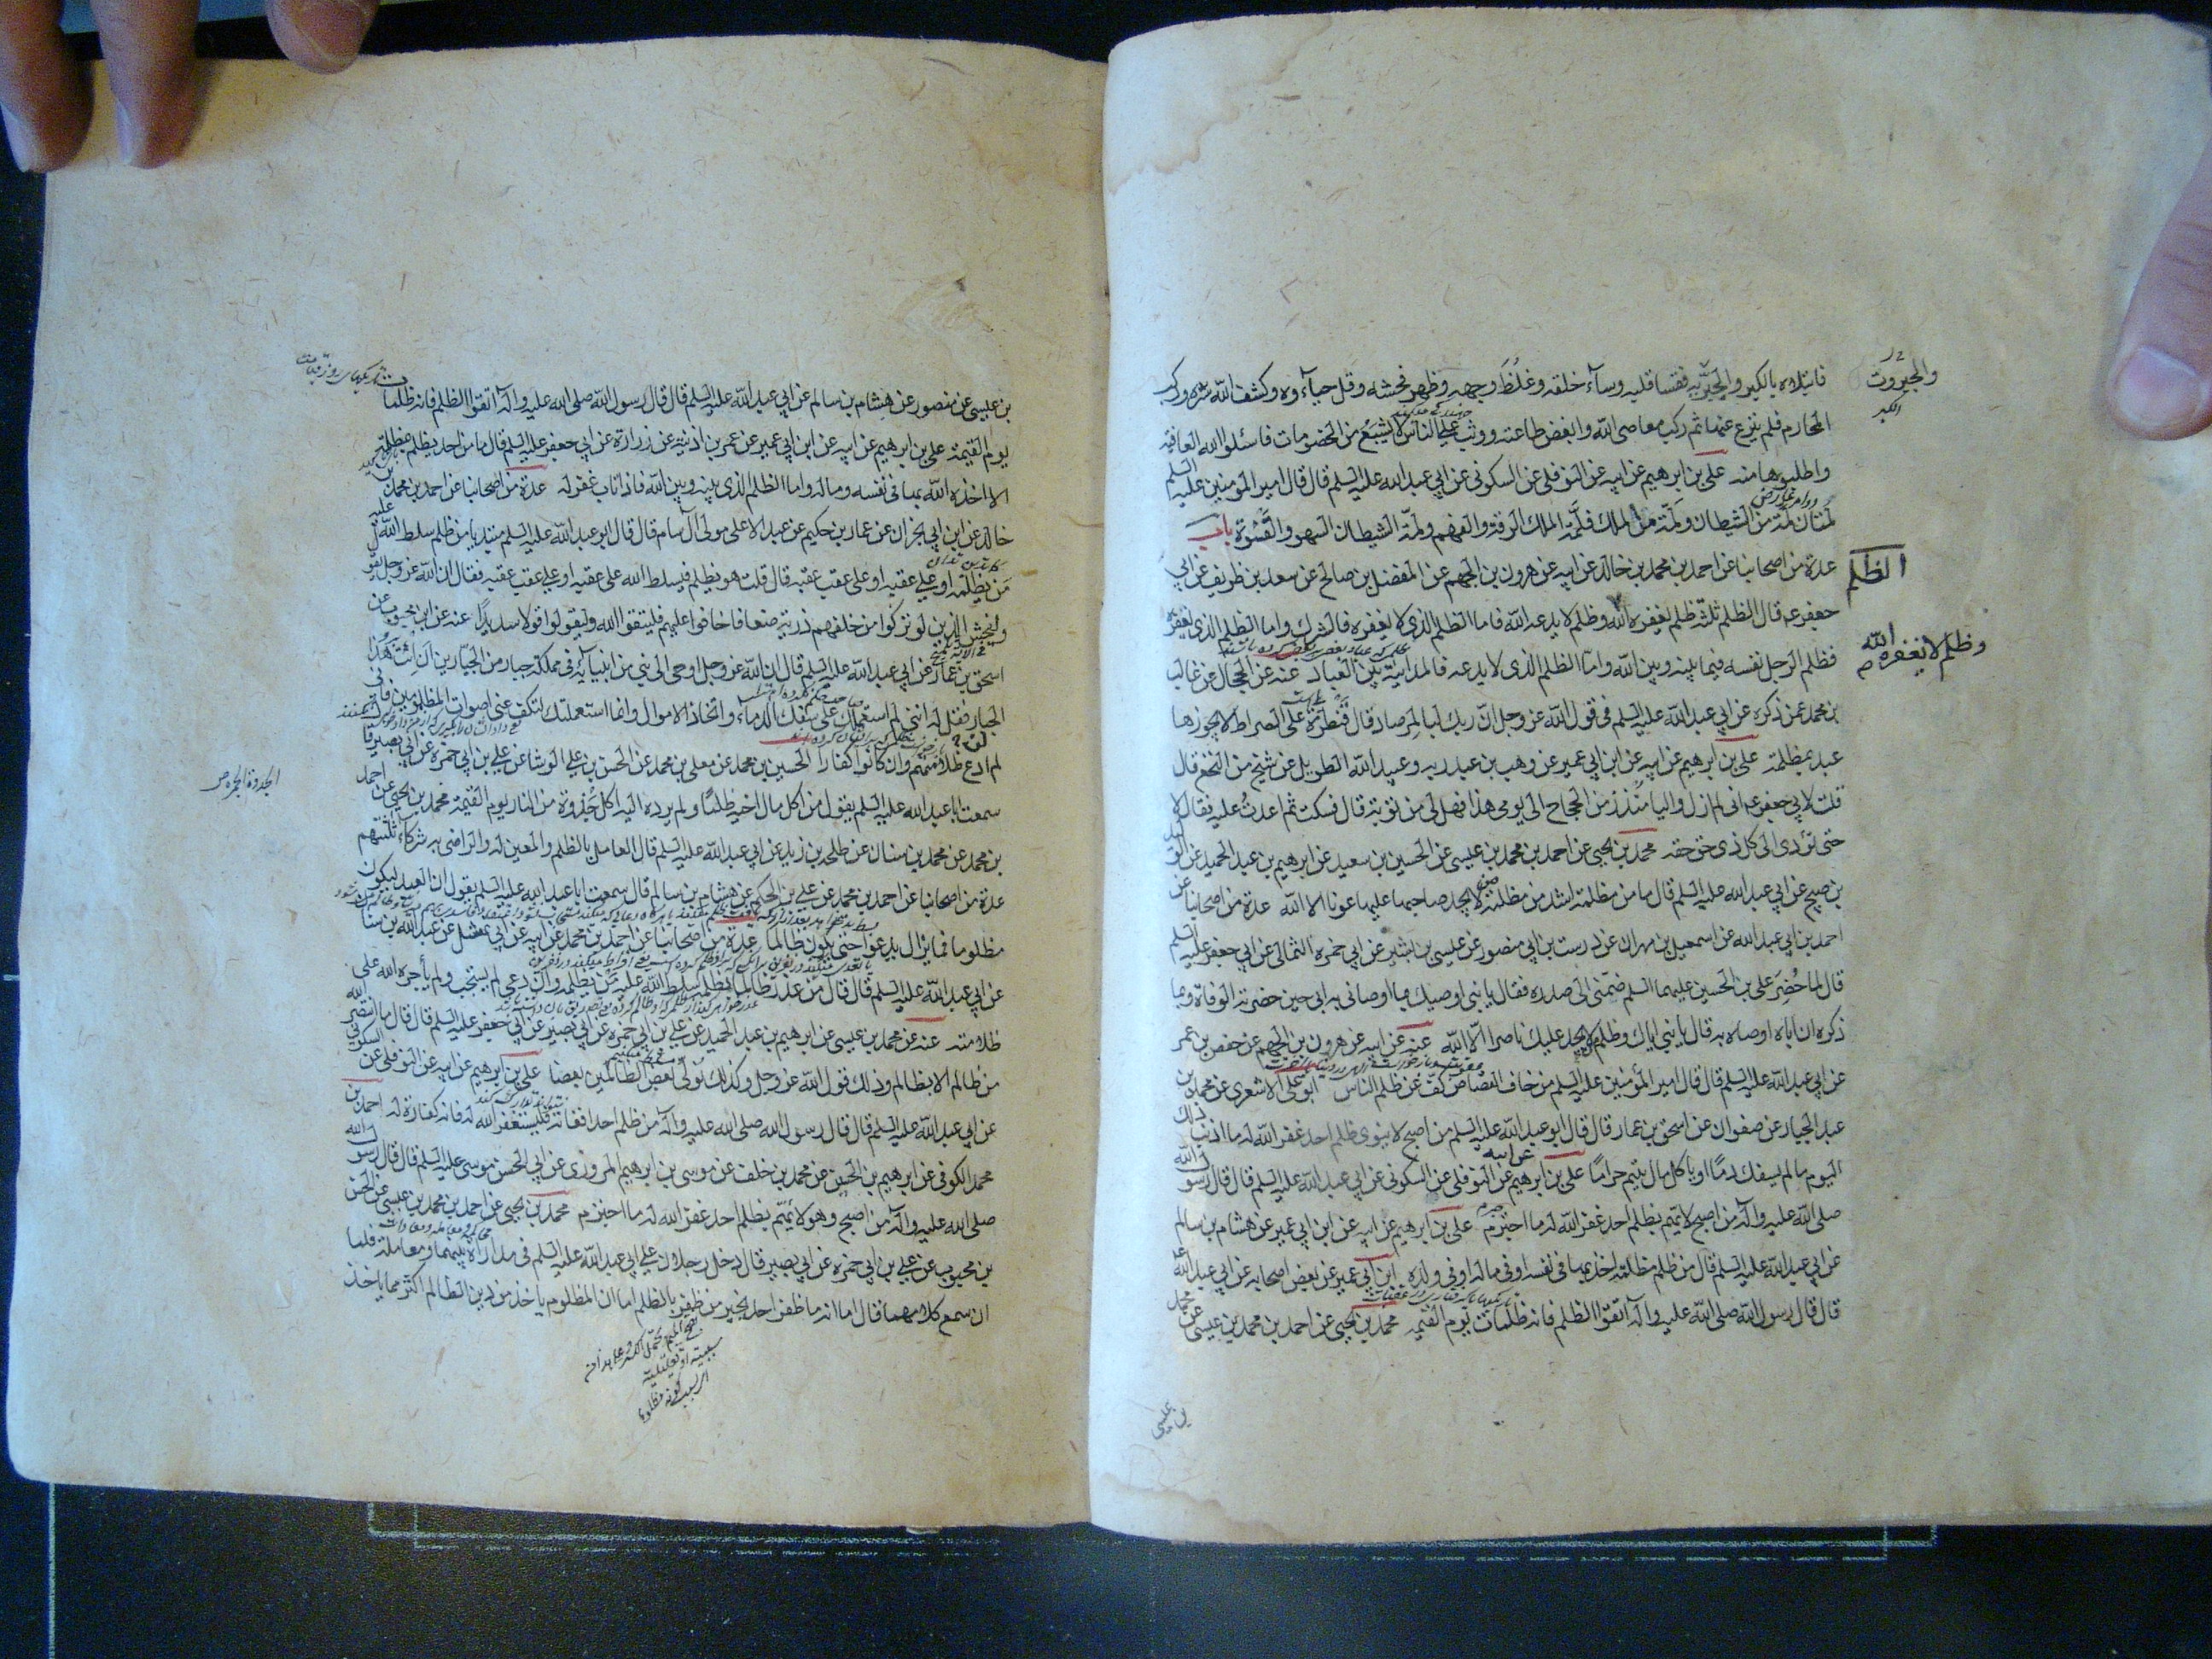 فابتلاه بالكبر والجبرية فقسا قلبه وساء خلقه وغلظ وجهه وظهر فحشه وقل حياؤه وكشف الله ستره وركب
والجبروت
المحارم فلم ينزع عنها ثم ركب معاصى الله وابغض طاعته ووثب على الناس لا يشبع من الخصومات فاسئلوا الله العافية
واطلبوها منه على بن ابرهيم عن ابيه عن النوفلى عن السكونى عن ابي عبد الله عليه السلم قال قال امير المؤمنين عليه السلم
لمتان لمة من الشيطان ولمة من الملك فلمة الملك الرقة والفهم ولمة الشيطان السهو والقسوة باب
الظلم
عدة من اصحابنا عن احمد بن محمد بن خالد عن ابيه عن هرون بن الجهم عن المفضل بن صالح عن سعد بن طريف عن ابي
جعفر ع قال الظلم ثلثة ظلم يغفره الله وظلم لا يدعه الله فاما الظلم الذى لا يغفره فالشرك واما الظلم الذى يغفره
وظلم لا يغفره الله
فظلم الرجل نفسه فيما بينه وبين الله واما الظلم الذى لا يدعه فالمداينة بين العباد عنه عن الحجال عن غالب
بن محمد عن ذكره عن ابي عبد الله عليه السلم فى قول الله عز وجل ان ربك لبالمرصاد قال قنطرة على الصراط لا يجوزها
عبد بمظلمة على بن ابرهيم عن ابيه عن ابن ابي عمير عن وهب بن عبد ربه وعبيد الله الطويل عن شيخ من النخع قال
قلت لابي جعفر ع انى لم ازل واليا منذ زمن الحجاج الى يومى هذا فهل لى من توبة قال فسكت ثم اعدت عليه فقال لا
حتى تؤدى الى كل ذى حق حقه محمد بن يحيى عن احمد بن محمد بن عيسى عن الحسين بن سعيد عن ابرهيم بن عبد الحميد عن الوليد
بن صبيح عن ابي عبد الله عليه السلم قال ما من مظلمة اشد من مظلمة لا يجد صاحبها عليها عونا الا الله عدة من اصحابنا عن
احمد بن ابي عبد الله عن اسمعيل بن مهران عن درست بن ابي منصور عن عيسى بن بشير عن ابي حمزة الثمالى عن ابي جعفر عليه السلم
قال لما حضر على بن الحسين عليهما السلم ضمنى الى صدره فقال يا بنى اوصيك بما اوصانى به ابي حين حضرته الوفاة وبما
ذكره ان اباه اوصاه به قال يا بنى اياك وظلم من لا يجد عليك ناصرا الا الله عنه عن ابيه عن هرون بن الجهم عن حفص بن عمر
عن ابي عبد الله عليه السلم قال قال امير المؤمنين عليه السلم من خاف القصاص كف عن ظلم الناس ابو على الاشعرى عن محمد بن
عبد الجبار عن صفوان عن اسحق بن عمار قال قال ابو عبد الله عليه السلم من اصبح لا ينوى ظلم احد غفر الله له ما اذنب ذلك
اليوم ما لم يسفك دما او ياكل مال يتيم حراما على بن ابرهيم عن ابيه عن النوفلى عن السكونى عن ابي عبد الله عليه السلم قال قال رسول الله
صلى الله عليه واله من اصبح لا يهم بظلم احد غفر الله له ما اجترم على بن ابرهيم عن ابيه عن ابن ابي عمير عن هشام بن سالم
عن ابي عبد الله عليه السلم قال من ظلم مظلمة اخذ بها فى نفسه او فى ماله او فى ولده ابن ابي عمير عن بعض اصحابه عن ابي عبد الله ع
قال قال رسول الله صلى الله عليه واله اتقوا الظلم فانه ظلمات يوم القيمة محمد بن يحيى عن احمد بن محمد بن عيسى عن محمد
بن عيسى
بن عيسى عن منصور عن هشام بن سالم عن ابي عبد الله عليه السلم قال قال رسول الله صلى الله عليه واله اتقوا الظلم فانه ظلمات
يوم القيمة على بن ابرهيم عن ابيه عن ابن ابي عمير عن عمر بن اذينة عن زرارة عن ابي جعفر عليه السلم قال ما من احد يظلم بمظلمة
الا اخذه الله بها فى نفسه وماله واما الظلم الذى بينه وبين الله فاذا تاب غفر له عدة من اصحابنا عن احمد بن محمد بن
خالد عن ابن ابي نجران عن عمار بن حكيم عن عبد الاعلى مولى آل سام قال قال ابو عبد الله عليه السلم مبتديا من ظلم سلط الله عليه
من يظلمه او على عقبه او على عقب عقبه قال قلت هو يظلم فيسلط الله على عقبه او على عقب عقبه فقال ان الله عز وجل يقول
وليخش الذين لو تركوا من خلفهم ذرية ضعافا خافوا عليهم فليتقوا الله وليقولوا قولا سديدا عنه عن ابن محبوب عن
اسحق بن عمار عن ابي عبد الله عليه السلم قال ان الله عز وجل اوحى الى نبي من انبيائه فى مملكة جبار من الجبارين ان ائت هذا
الجبار فقل له اننى لم استعملك على سفك الدماء واتخاذ الاموال وانما استعملتك لتكف عنى اصوات المظلومين فانى
لم ادع ظلامتهم وان كانوا كفارا الحسين بن محمد عن معلى بن محمد عن الحسن بن على الوشا عن على بن ابي حمزة عن ابي بصير قال
سمعت ابا عبد الله عليه السلم يقول من اكل مال اخيه ظلما ولم يرده اليه اكل جذوة من النار يوم القيمة محمد بن يحيى عن احمد
بن محمد عن محمد بن سنان عن طلحة بن زيد عن ابي عبد الله عليه السلم قال العامل بالظلم والمعين له والراضى به شركاء ثلثتهم
عدة من اصحابنا عن احمد بن محمد عن على بن الحكم عن هشام بن سالم قال سمعت ابا عبد الله عليه السلم يقول ان العبد ليكون
مظلوما فما يزال يدعو حتى يكون ظالما عدة من اصحابنا عن احمد بن محمد عن ابيه عن ابي نهشل عن عبد الله بن سنان
عن ابي عبد الله عليه السلم قال قال من عذر ظالما بظلمه سلط الله عليه من يظلمه وان دعى لم يستجب ولم يأجره الله على
ظلامته عنه عن محمد بن عيسى عن ابرهيم بن عبد الحميد عن على بن ابي حمزة عن ابي بصير عن ابي جعفر عليه السلم قال قال ما انتصر الله
من ظالم الا بظالم وذلك قول الله عز وجل وكذلك نولى بعض الظالمين بعضا على بن ابرهيم عن ابيه عن النوفلى عن السكونى
عن ابي عبد الله عليه السلم قال قال رسول الله صلى الله عليه واله من ظلم احدا ففاته فليستغفر الله له فانه كفارة له احمد بن
محمد الكوفى عن ابرهيم بن الحسين عن محمد بن خلف عن موسى بن ابرهيم المروزى عن ابي الحسن موسى عليه السلم قال قال رسول الله
صلى الله عليه واله من اصبح وهو لا يهم بظلم احد غفر الله له ما اجترم محمد بن يحيى عن احمد بن محمد بن عيسى عن الحسن
بن محبوب عن على بن ابي حمزة عن ابي بصير قال دخل رجلان على ابي عبد الله عليه السلم فى مداراة بينهما ومعاملة فلما
ان سمع كلامهما قال اما انه ما ظفر احد بخير من ظفر بالظلم اما ان المظلوم ياخذ من دين الظالم اكثر مما ياخذ